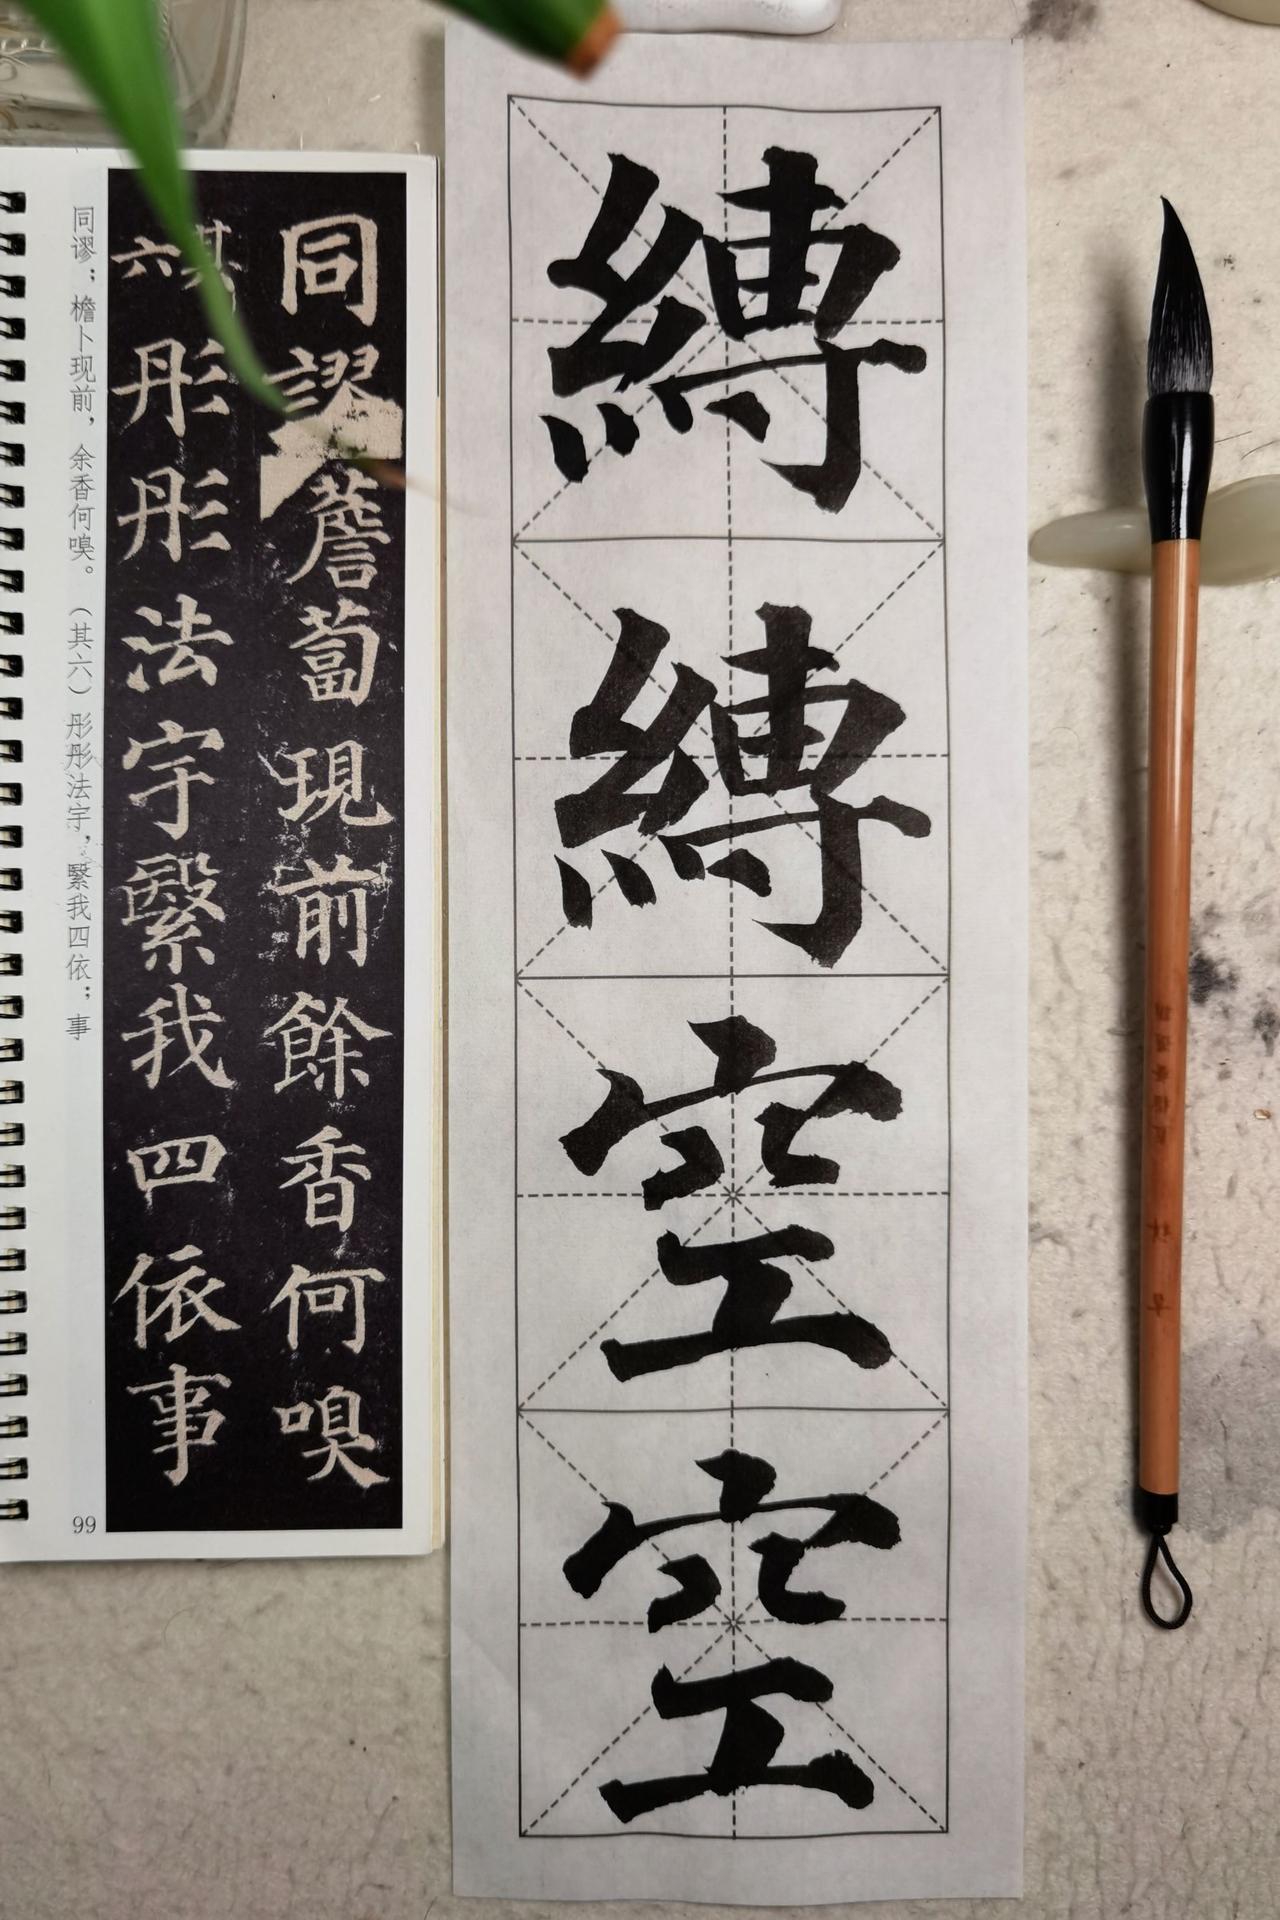 縛縛空空
同謬薝蔔現前餘香何嗅
其六彤彤法宇繄我四依事
同谬；檐卜现前，余香何嗅。（其六）彤彤法宇，繄我四依；事
99